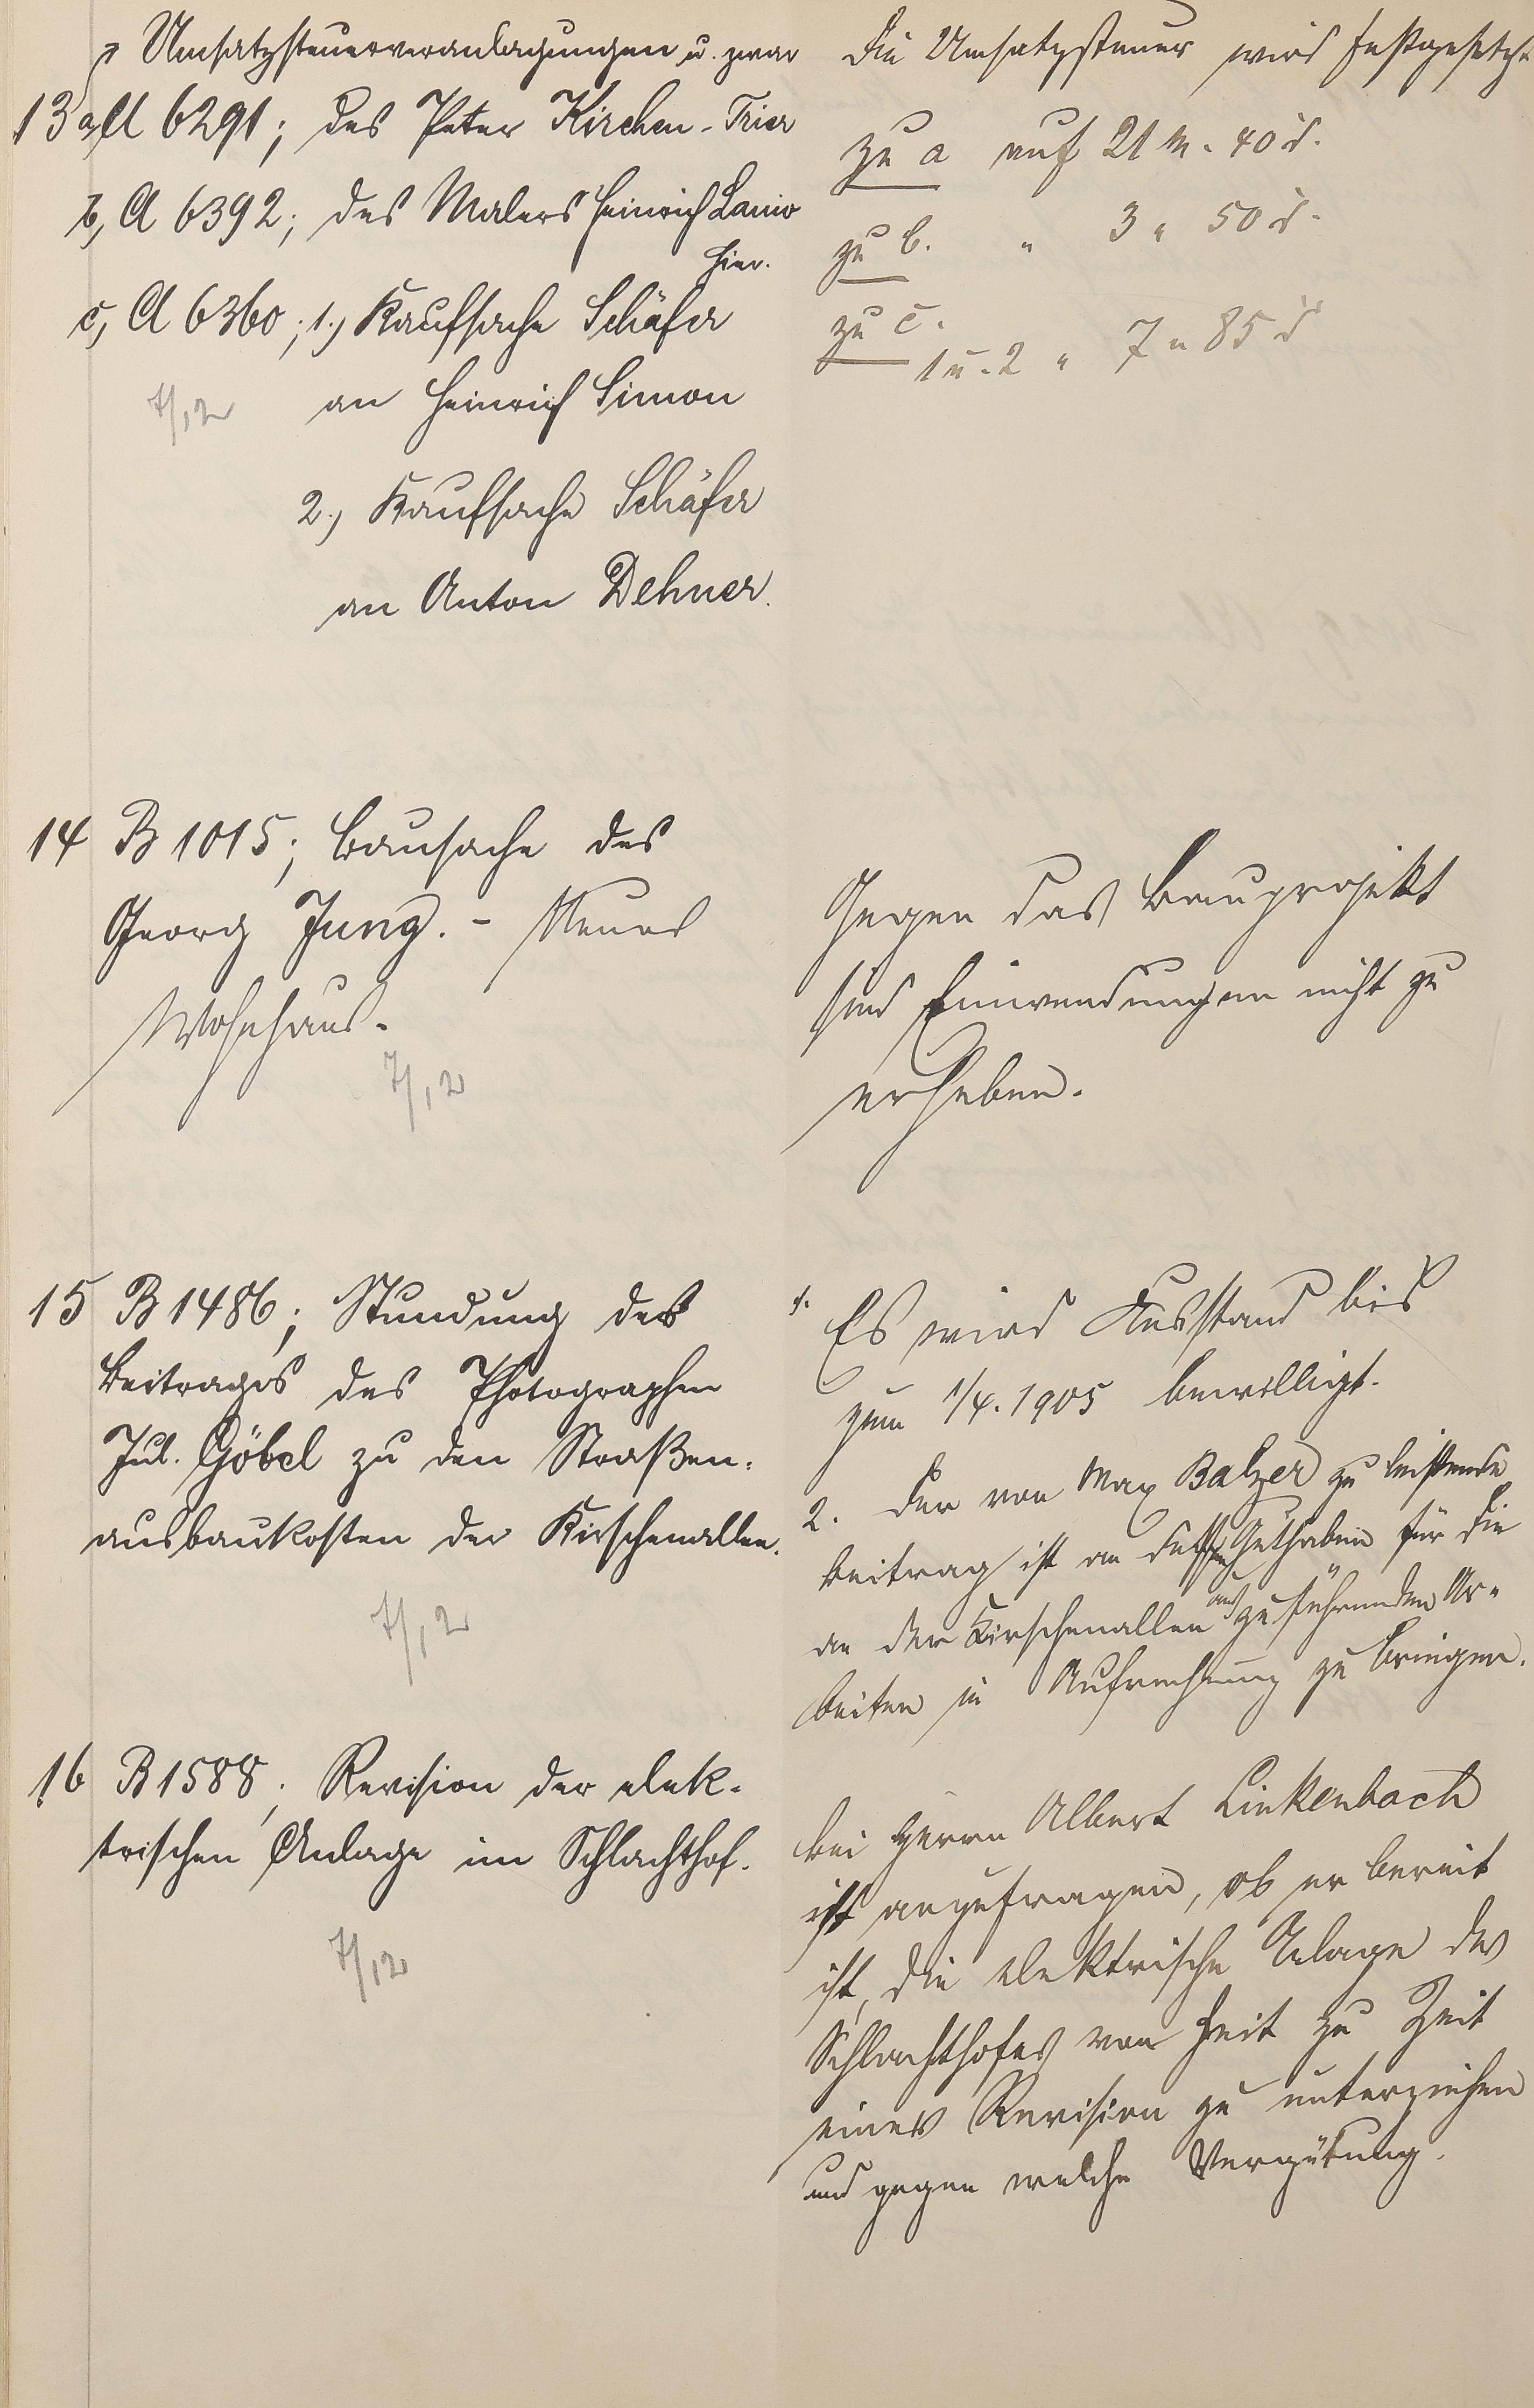 Umsatzsteuerveranlagungen u. zwar
13 a, A 6291; des Peter Kirchen-Trier
b, A 6392; des Malers Heinrich Lanio
hier.
c, A 6360; 1.) Kaufsache Schäfer
an Heinrich Simon
7/12
2.) Kaufsache Schäfer
an Anton Dehner.
Die Umsatzsteuer wird festgesetzt
zu a auf 21 M. 40 d.
zu b. " 3 " 50 d.
zu c.
1 u. 2 " 7 " 85 d
14 B 1015; Bausache des
Georg Jung. - Neues
Wohnhaus.
7/12
Gegen das Bauprojekt
sind Einwendungen nicht zu
erheben.
15 B 1486; Stundung des
Beitrages des Photographen
Jul. Göbel zu den Straßen-
ausbaukosten der Kirschenallee.
7/12
1. Es wird Ausstand bis
zum 1/4. 1905 bewilligt.
2. Der von Max Balzer zu leistende
Beitrag ist an dessen Guthaben für die
an der Kirschenallee auszuführenden Ar-
beiten in Aufrechnung zu bringen.
16 B 1588; Revision der elek-
trischen Anlage im Schlachthof.
7/12
Bei Herrn Albert Linkenbach
ist anzufragen, ob er bereit
ist, die elektrische Anlage des
Schlachthofes von Zeit zu Zeit
einer Revision zu unterziehen
und gegen welche Vergütung.